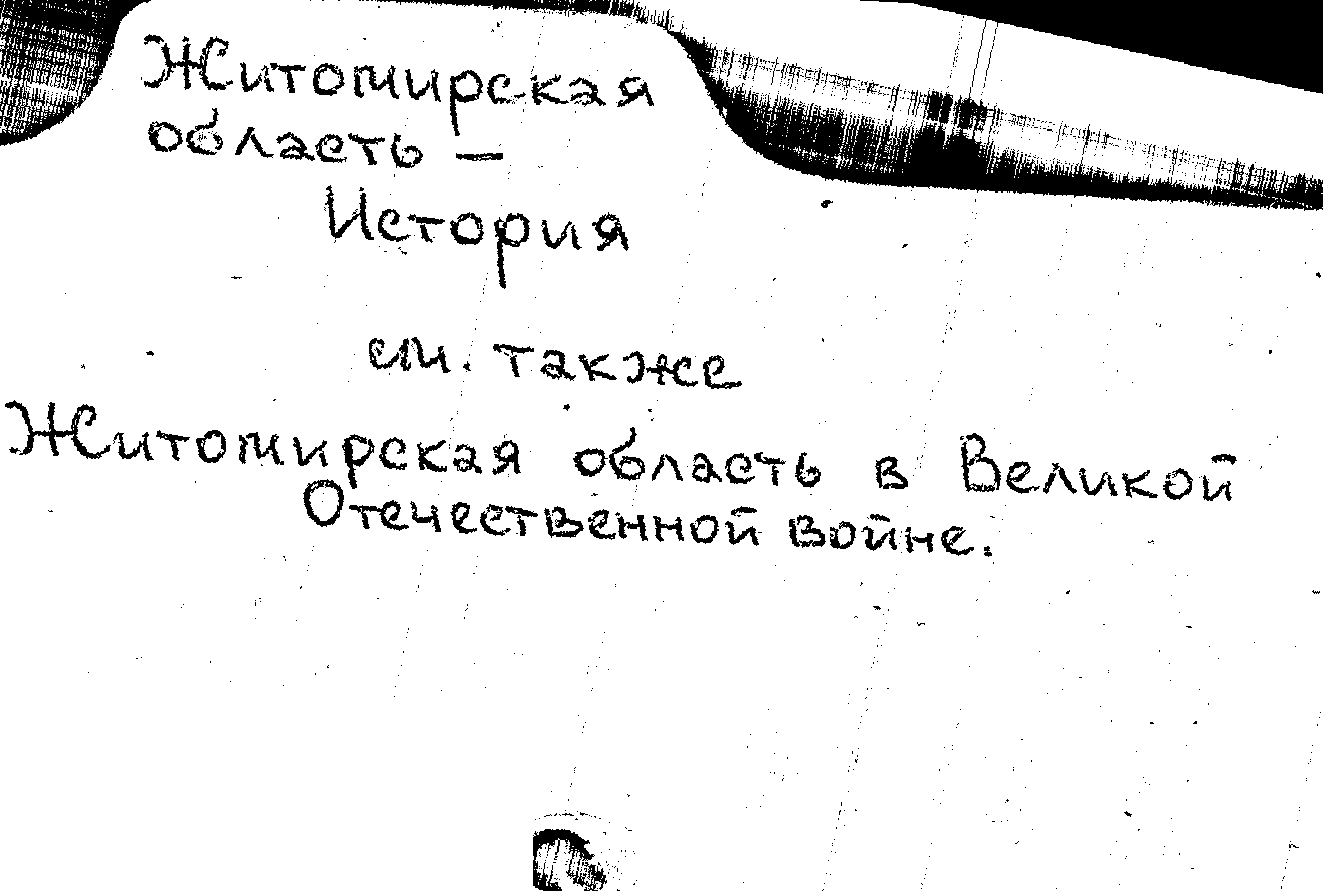 Житомирская
область —
История
см. также
Житомирская область в Великой
Отечественной войне.